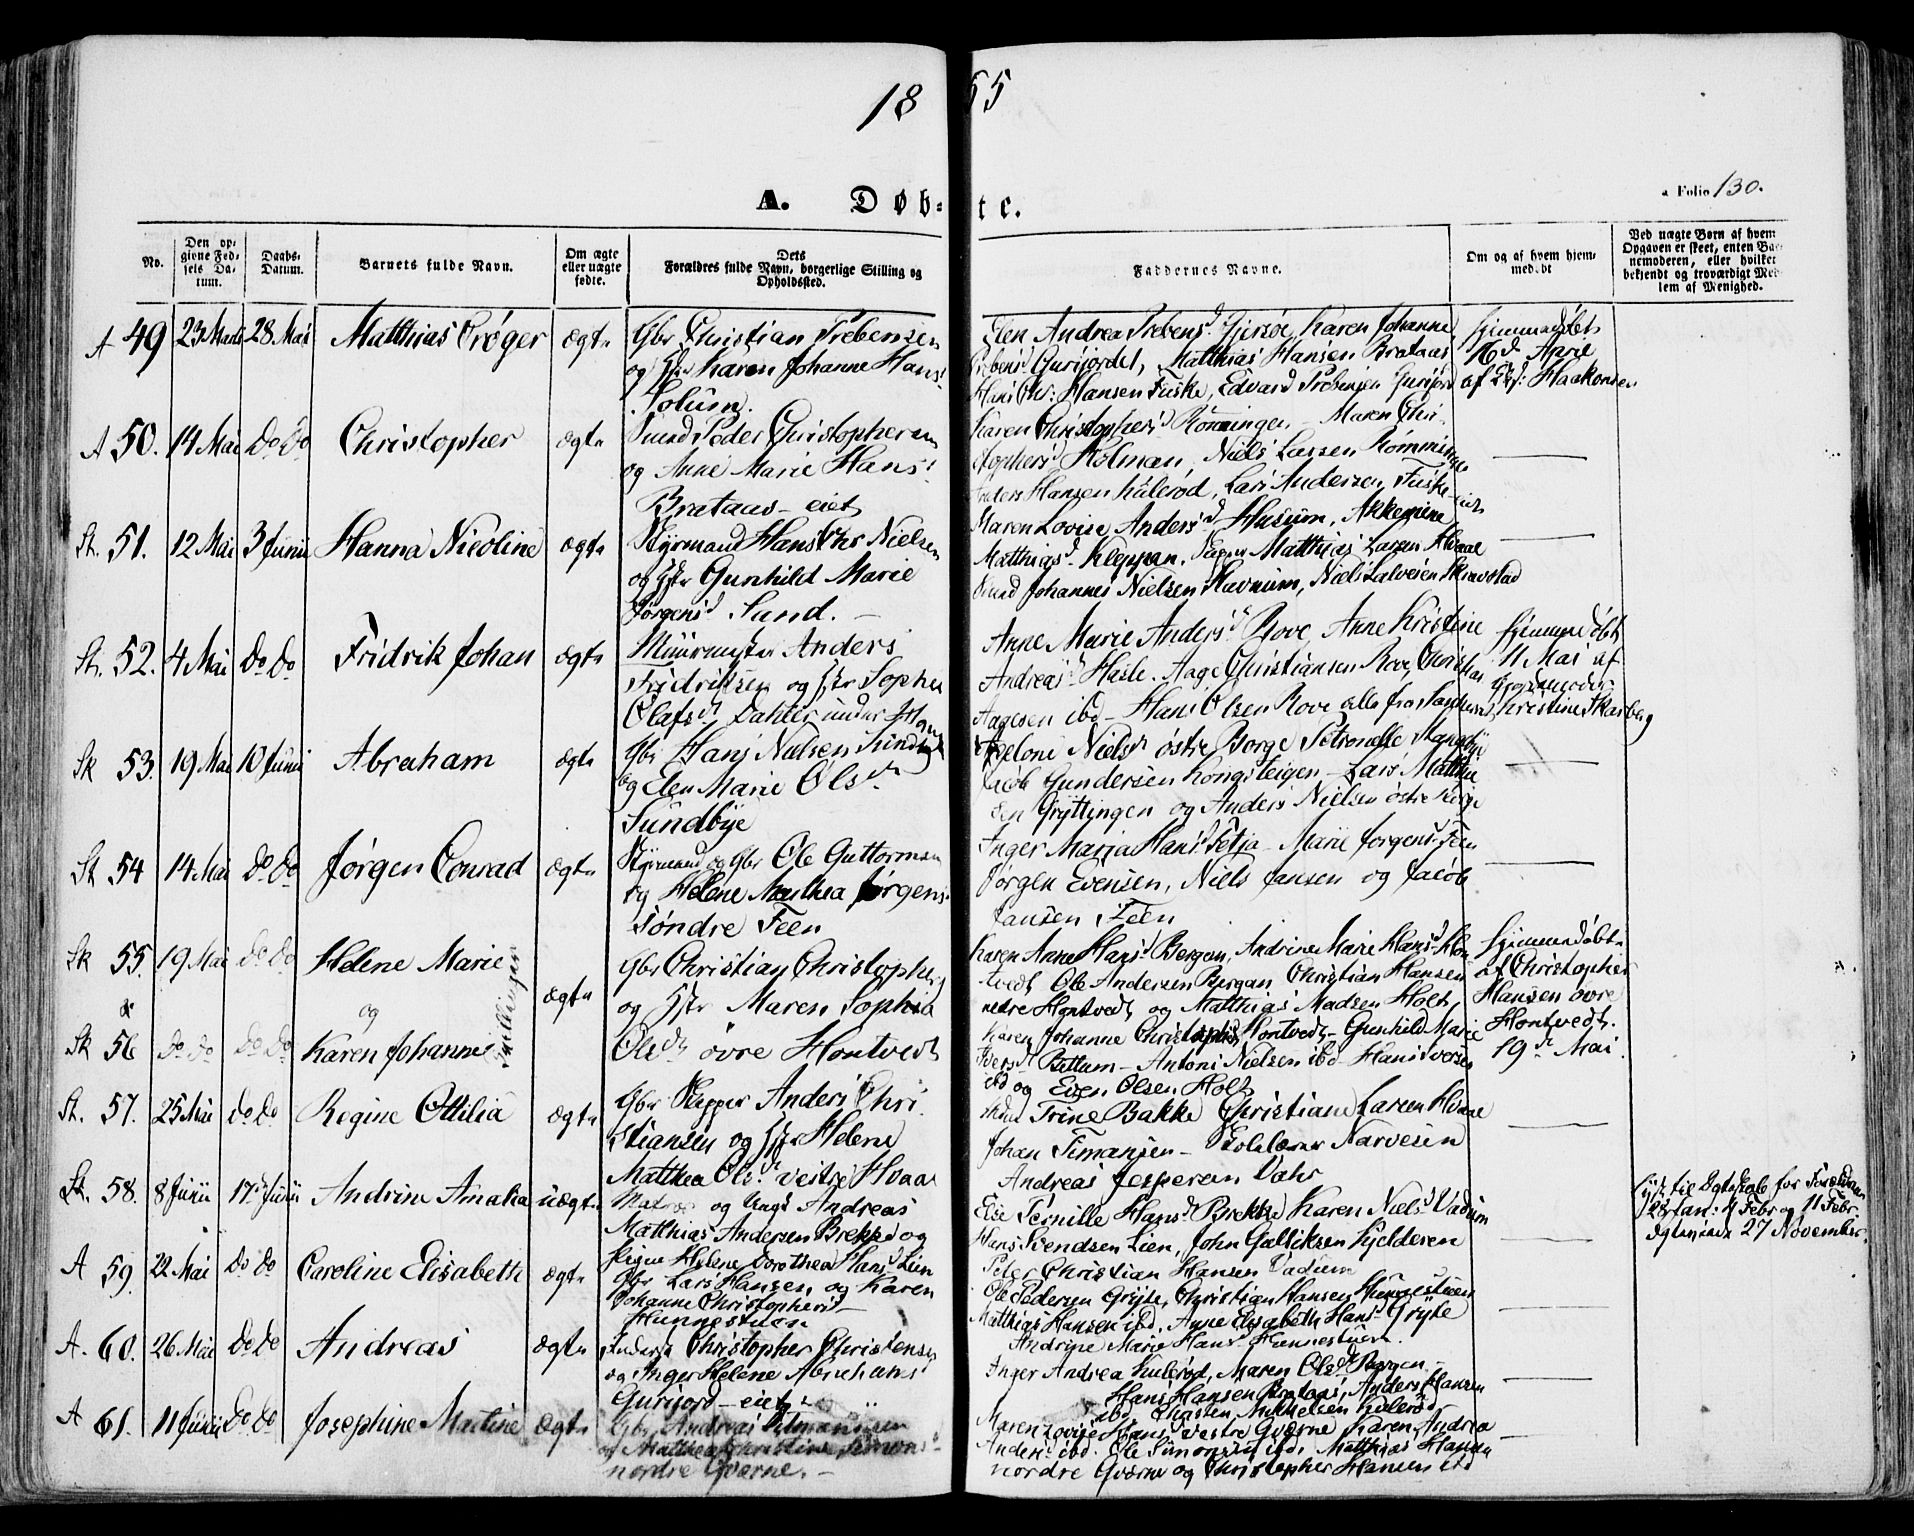 18 55
a Folio 130.
A. Døb- te.
No.
Den op-
givne Fød-
sels Da-
tum.
Daabs-
Datum.
Barnets fulde Navn.
Om ægte
eller uægte
fødte.
Dets
Forældres fulde Navn, borgerlige Stilling og
Opholdssted.
Faddernes Navne.
Om og af hvem hjem-
medøbt
Ved uægte Børn af hvem
Opgaven er skeet, enten Bar-
nemoderen, eller hvilket
bekjendt og troværdigt Med-
lem af Menighed.
A 49 23 Marts 28 Mai Matthias Crøger ægte
Gbr Christian Prebensen
og Hstr Karen Johanne Hans
Solum.
Elen Andrea Prebensd. Gjersøe, Karen Johanne
Prebensd. Gurijordet, Matthias Hansen Brataas
Hans Chr: Hansen Fuske, Edvard Prebensen Gurijord
Hjemmedøbt
16d April
af Haakonsen
A 50. 14 Mai Do Do Christopher ægte
Peder Christophersen
og Anne Marie Hans
Brataas-eiet
Karen Christophersd Rønningen - Maren Chri-
stophersd Holman, Niels Larsen Rømminge
Anders Hansen Kulerød, Lars Andersen, Fuske-eiet
St. 51. 12 Mai 3 Junii Hanna Nicoline ægte
Styrmand Hans Chr Nielsen
og Hstr Gunhild Marie
Jørgensd Sund. -
Maren Lovise Andersd Husum, Akkemine
Matthiasd Kleppan. Matthias Larsen Hvaal
Johannes Nielsen Havnum, Niels Halvorsen Skravestad
St. 52. 4 Mai Do Do Fridrik Johan ægte
Muurmester Anders
Fridriksen og Hstr Sophie
Olafsdr Dahler under
Anne Marie Andersd Rove, Anne Kristine
Andreasd Hasle. Aage Christiansen Rove, Christian
Aagesen ibd - Hans Olsen Rove alle fra
Hjemmedøbt
11 Mai af
Christine Skarberg
Sk 53. 19 Mai 10 Junii Abraham ægte
Gbr Hans Nielsen Sundbye
og Elen Marie Olsdr
Sundbye
Nielsdr østre Borge Petronelle
Jacob Gundersen Kongsteigen - Lars Matthi-
sen Gryttingen og Anders Nielsen østre Borge
St 54 14 Mai Do Do Jørgen Conrad ægte
Styrmand og Gbr Ole Guttormsen
og Helene Mathea Jørgens
Søndre Feen
Inger Maria Hansd - Marie Jorgensd Feen
Jørgen Evensen, Niels Jansen og Jacob
Jansen Feen
Sk 55. 19 Mai Do Do Helene Marie
og
ægte
Tvillinger
Gbr Christian Christophers
og Hstr Maren Sophia
Olsdr øvre Hontvedt
Karen Anne Hansd Bergan, Andrine Marie Hansd Hon-
tvedt Ole Andersen Bergan Christian Hansen
nedre Hontvedt og Matthias Madsen Holt
Hjemmedøbt
af Christopher
Hansen øvre
Hontvedt.
19de Mai
Sk 56 Do Do Do Do Karen Johanne
Karen Johanne Christophersd Hontvedt - Gunhild Marie
Bettum - Anton Nielsen ibd - Hans Iversen
ibd og Even Olsen Holt
St. 57. 25 Mai Do Do Regine Ottilia ægte
Gbr Skipper Anders Chri-
stiansen og Hstr Helene
Matthea Olsdr vestre Hvaal
Trine Bakke Christiane Larsen Hvaal
Johan Timansen - Skolelærer Narvesen
Andreas Jespersen Vahr
St. 58. 8 Junii 17. Junii Andrine Amalia uægte
Matros og Ungk Andreas
Matthias Andersen Brekke og
Pigen Helene Dorothea Hansd Lien
Else Pernille Hansd Brekke Karen Nielsd Vadum
Hans Svendsen Lien, John Gulliksen Kjelderen
Peter Christian Hansen Vadum
Lyst til Ægteskab for Forældrene
28 Jan: 4 Febr og 11 Febr:
Ægteviede 27 November.
A 59. 22 Mai Do Do Caroline Elisabeth ægte
Gbr Lars Hansen og Karen
Johanne Christophersd -
Hunnestuen
Ole Pedersen Gryte, Christian Hansen Hunnestuen
Matthias Hansen ibd, Anne Elisabeth Hansd Gryte
Andrine Marie Hansd Hunnestuen.
A. 60. 26 Mai Do Do Andreas ægte
Christopher Christensen
og Inger Helene Abrahams
Gurijord-eiet
Inger Andrea Kulerød, Maren Olsdr Bergan -
Hans Hansen Brataas, Anders Hansen
ibd Christen Mikkelsen Kulerød,
A 61. 11 Junii Do Do Josephine Martine Ægte
Gbr Andreas
og Mathea Christine Simons
nordre Gværne. -
Maren Lovise Hansd vestre Gværne Karen Andrea
Andersd ibd. Ole Simonsen ibd. Matthias Hansen
nordre Gværne og Christopher Hansen ibd